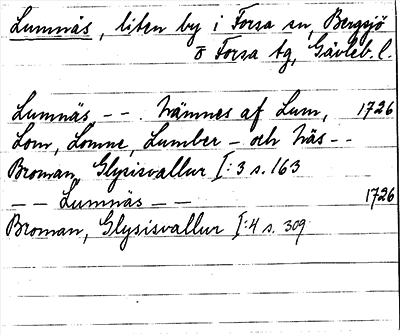 Lumnäs, liten by i Forsa sn, Bergsjö
o Forsa tg, Gävleb. l.
Lumnäs, -- . nämnes af Lum, 1726
Lom, Lomne, Lumber - och näs --
Broman, Glysisvallur I:3 s. 163
-- Lumnäs -- 1726
Broman, Glysisvallur I:4 s. 309